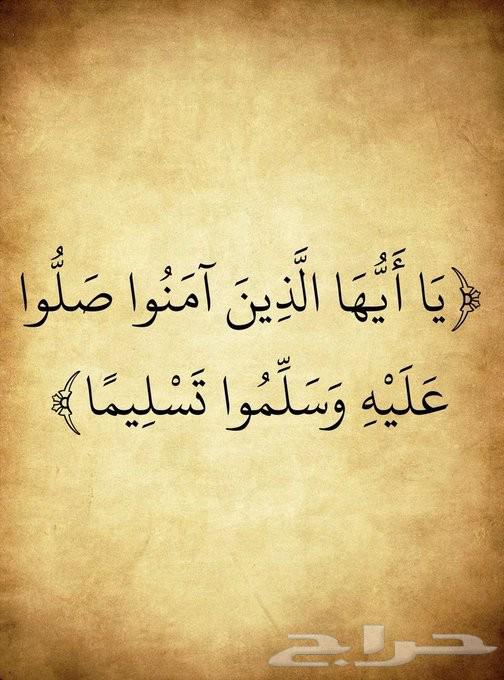 ﴿يَا أَيُّهَا الَّذِينَ آمَنُوا صَلُّوا
عَلَيْهِ وَسَلِّمُوا تَسْلِيمًا﴾
حراج